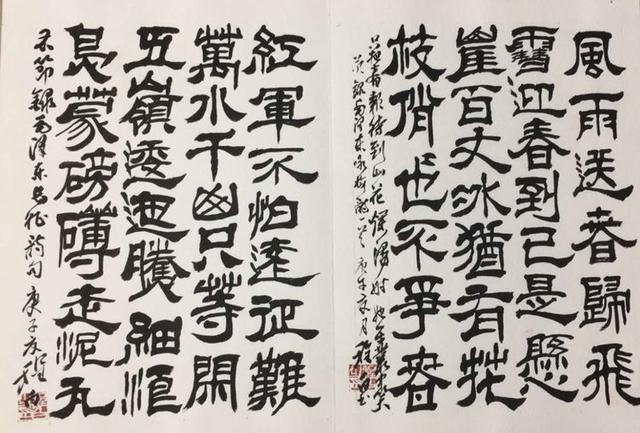 風雨送春歸飛
雪迎春到已是懸
崖百丈冰猶有花
枝俏也不爭春
春報待到山花爛漫時她在叢中笑
錄毛澤東詠梅詞
紅軍不怕遠征難
萬水千山只等閑
五嶺逶迤騰細浪
烏蒙磅礴走泥丸
節錄毛澤東長征詩句 庚子